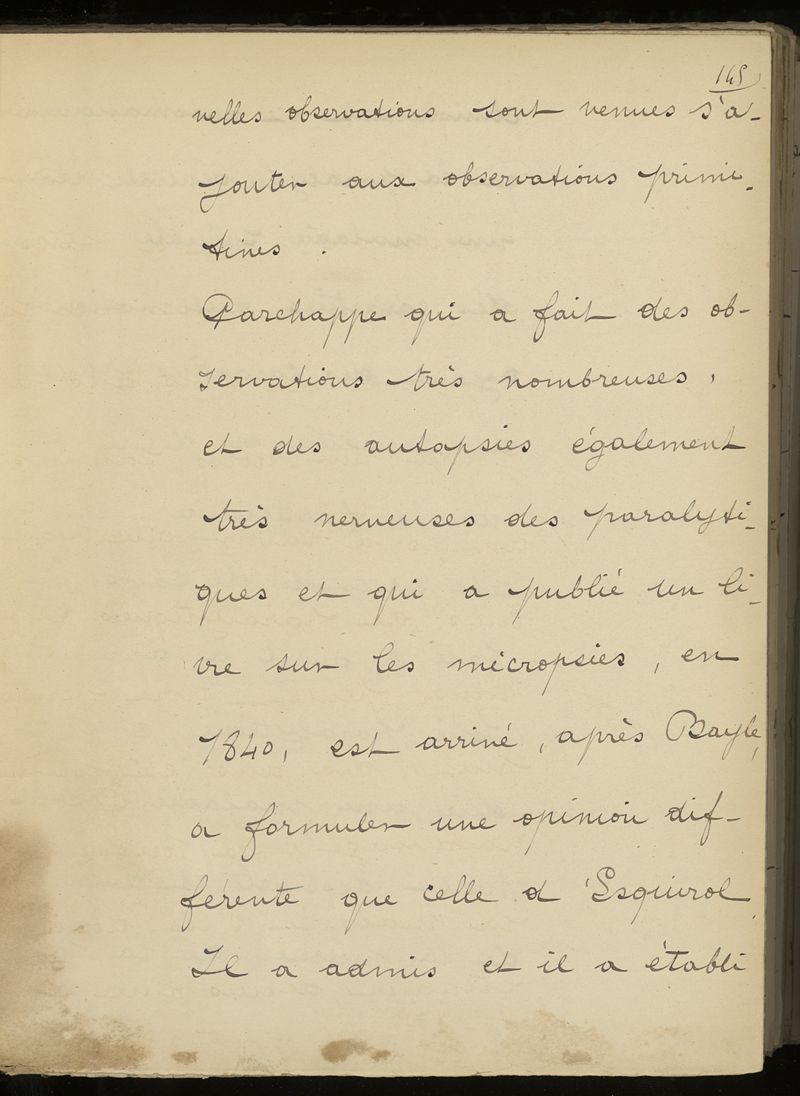 145
velles observations sont venues s'a-
jouter aux observations primi-
tives.
Parchappe qui a fait des ob-
servations très nombreuses,
et des autopsies également
très nerveuses des paralyti-
ques et qui a publié un li-
vre sur les micropsies, en
1840, est arrivé, après Bayle,
a formuler une opinion dif-
férente que celle d'Esquirol
Il a admis et il a établi